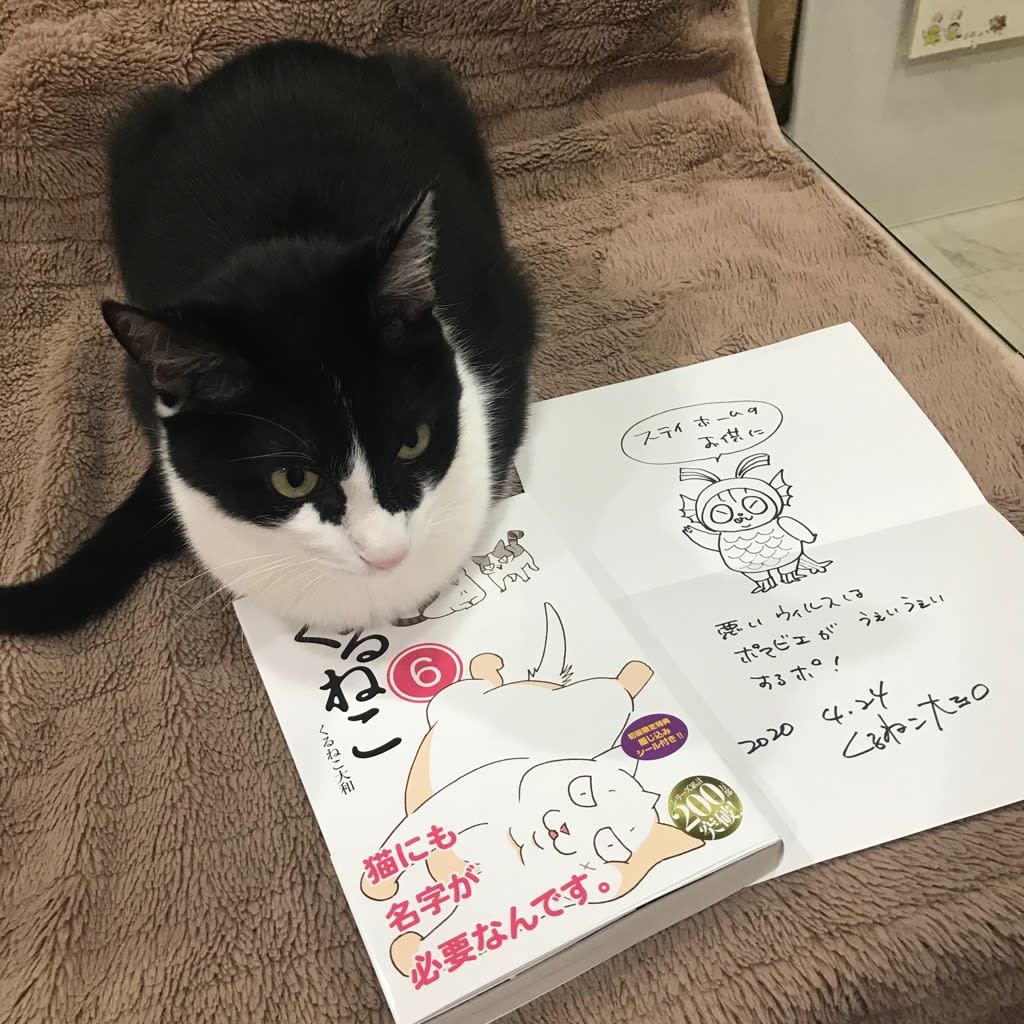 くるねこ
6
くるねこ大和
初版限定特典
綴じ込み
シール付き!!
シリーズ累計
200万部
突破
猫にも
名字が
必要なんです。
ステイホームの
お供に
悪いウィルスは
ポマビエが うぇいうぇい
するポ!
2020 4.24
くるねこ大和